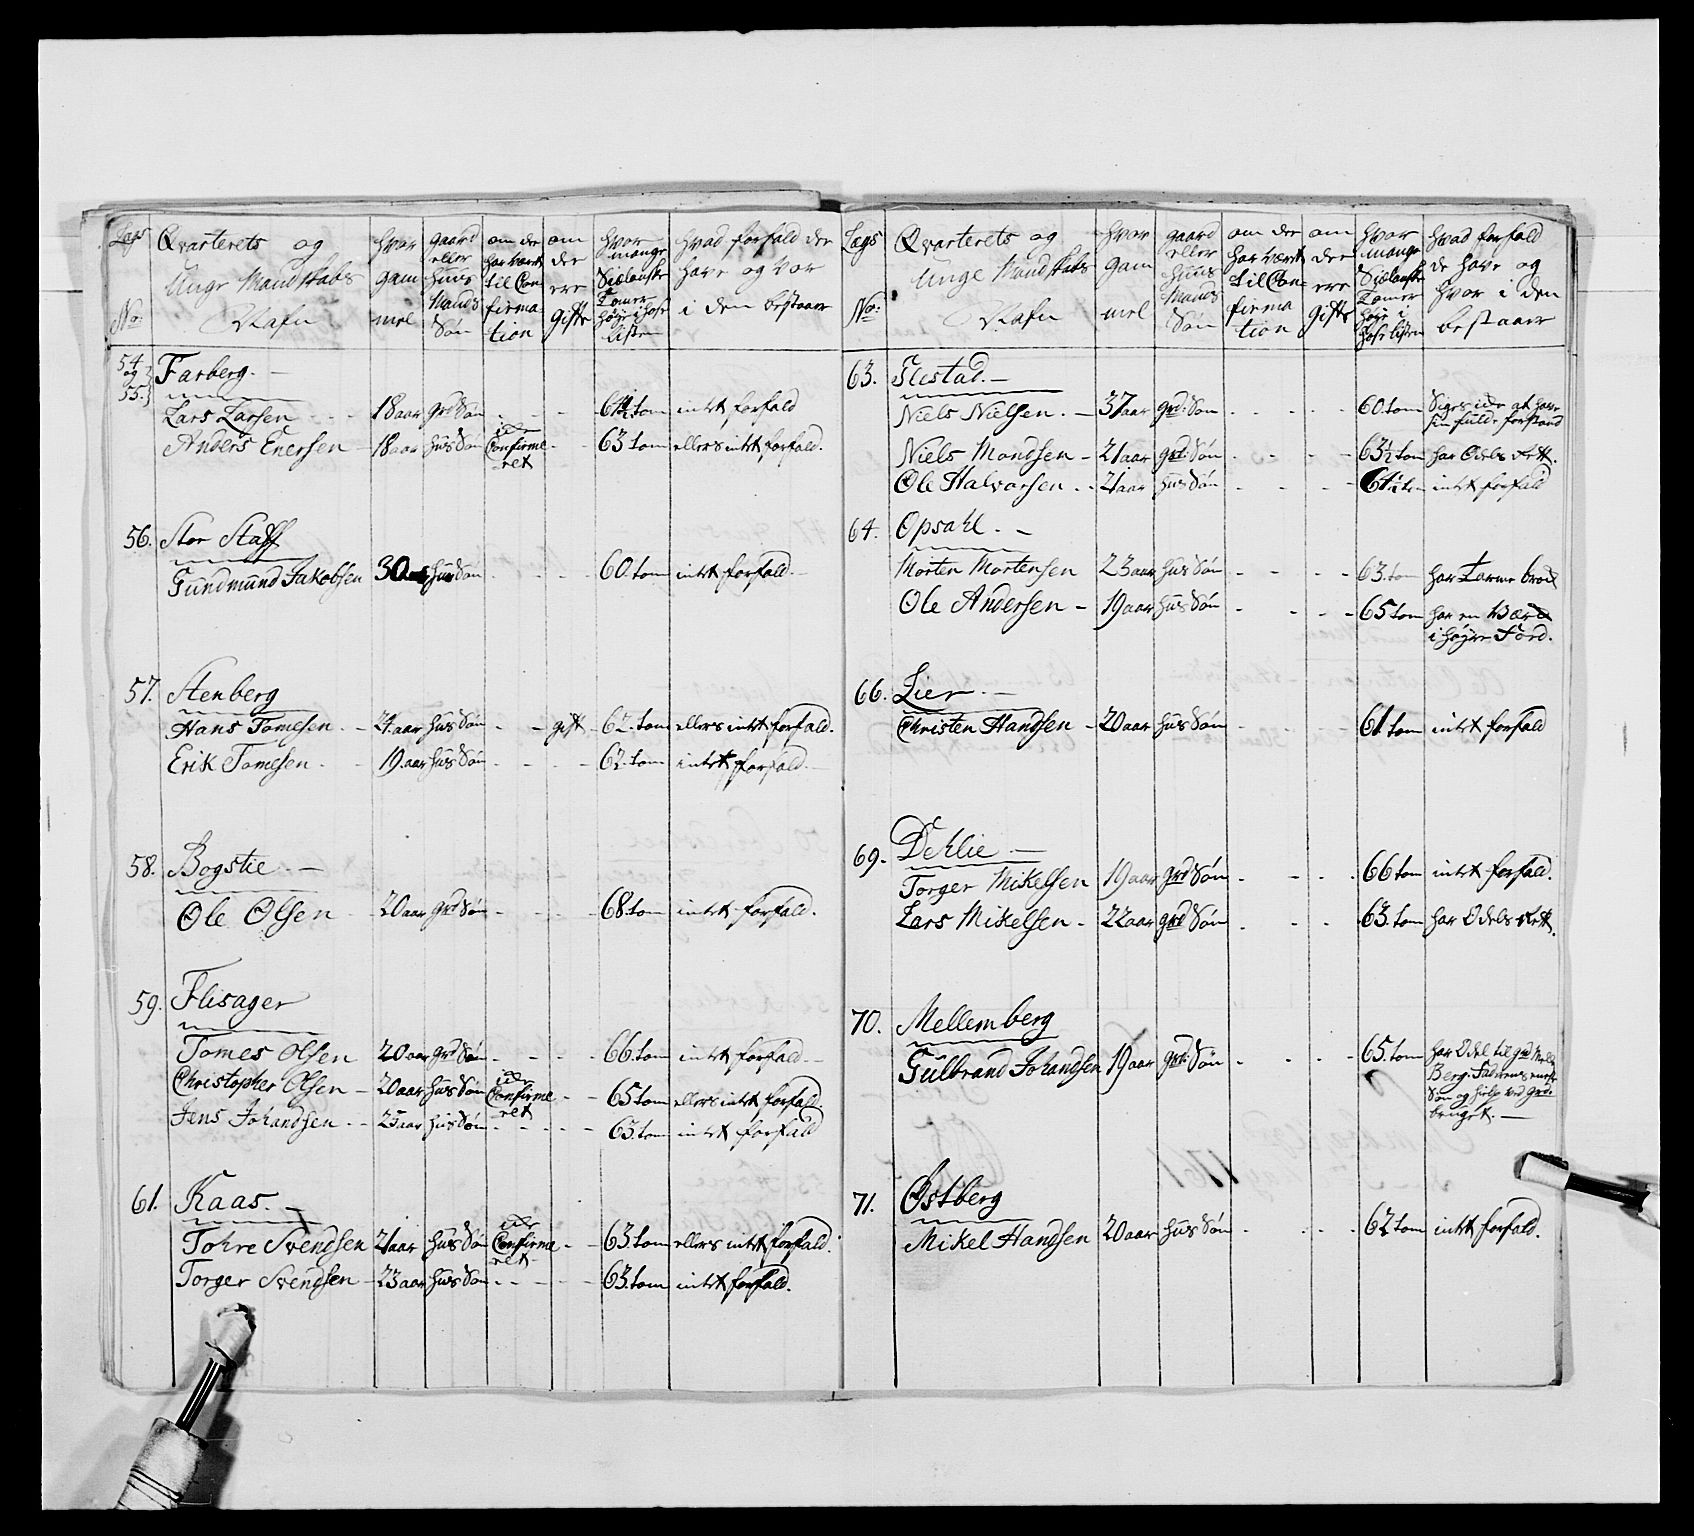 Lægs No: | Qvarterets og Unge Mandskabs Nafn | hvor gam mel | gaard eller huus Mands Søn | om der har været til Con firma tion | om der ere gifte | hvor mange Siælanske Tomer høye i hose listen | hvad forfald der have og vor i dem bestaar
54 og 55. Farberg. —
Lars Larsen - - - 18 aar grd Søn - - - 61½ tom intet forfald
Anders Enersen - 18 aar hus Søn Confirme ret - - 63 tom ellers intet forfald.
56. Stor Staff
Gundmund Jakobsen 30 aar hus Søn - - - 60. tom intet forfald. —
57. Stenberg
Hans Tomesen. - - 24. aar hus Søn - - gift - 62. tom ellers intet forfald.
Erik Tomesen. - 19. aar hus Søn - - - 62. tom intet forfald. —
58. Bogstie. —
Ole Olsen - 20 aar grd Søn - - - 68. tom intet forfald.
59. Flisager
Tomes Olsen 20 aar grd Søn - - - 66. tom intet forfald. —
Christopher Olsen - 20 aar hus Søn Confirme ret - - 65 tom ellers intet forfald
Jens Johandsen. - - 25 aar hus Søn - - - 63. tom intet forfald
61. Kaas. —
Tohre Svendsen 21 aar hus Søn Confirme ret - - 63. tom ellers intet forfald.
Torger Svendsen - 23 aar hus Søn - - - 63. tom intet forfald.
Lægs No: | Qvarterets og Unge Mandskabs Nafn | hvor gam mel | gaard eller huus Mands Søn | om der har været til Con firma tion | om der ere gifte | hvor mange Siælanske Tomer høye i hose listen | hvad forfald de have og hvor i den bestaar
63. Flestad. —
Niels Nielsen. — 37 aar grd: Søn - - - 60. tom Siges icke at have sin fulde forstand
Niels Mondsen - 21 aar grd: Søn - - - 63½ tom har Odels Rett.
Ole Halvorsen - - 21 aar hus Søn - - - 61½ tom intet forfald
64. Opsahl. —
Morten Mortensen 23 aar hus Søn - - - 63. tom har Tarme brock
Ole Andersen - 19 aar hus Søn - - - 65 tom har en
i høyre Fod.
66. Lier. —
Christen Handsen - 20 aar hus Søn - - - 61. tom intet forfald
69. Dehlie. —
Torger Mikelsen 19 aar grd Søn - - - 66 tom intet forfald.
Lars Mikelsen - 22 aar grd Søn - - - 63. tom har Odels Rett.
70. Mellemberg
Gulbrand Johandsen 19 aar grd: Søn - - - 65. tom har Odel til grd
Berg. Faderens eneste
Søn og hielp ved grds
bruget. —
71. Østberg
Mikel Handsen 20 aar hus Søn - - - 62 tom intet forfald.